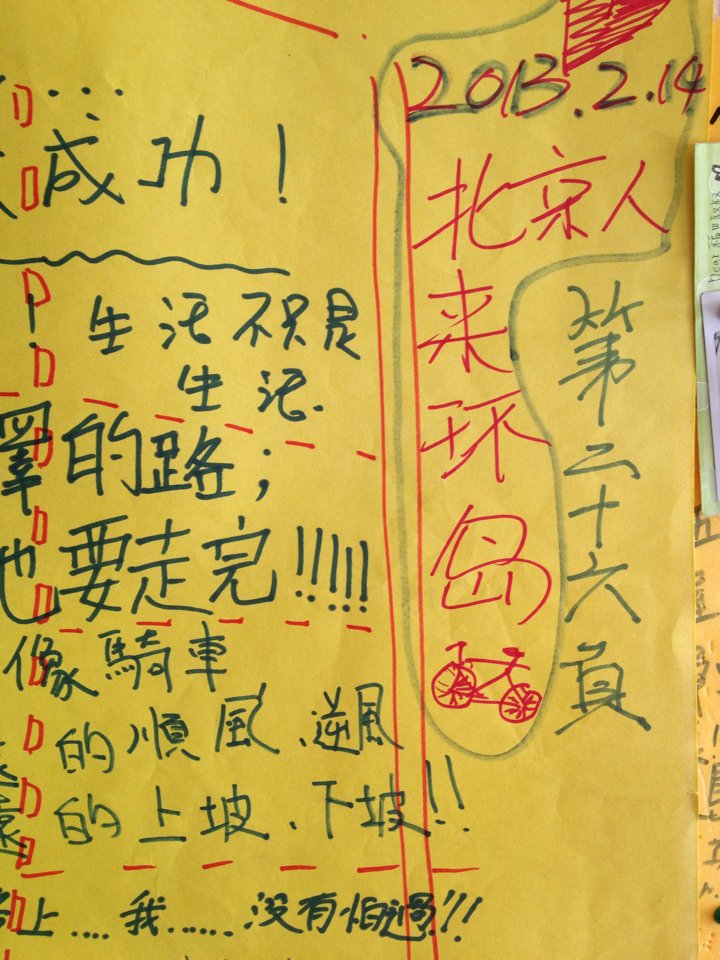 2013.2.14
北京人
来
环
岛
第二十六頁
成功！
生活不只是
生活.
的路；
也要走完!!!!!
像騎車
的順風、逆風
的上坡、下坡!!
上....我......没有怕過!!!